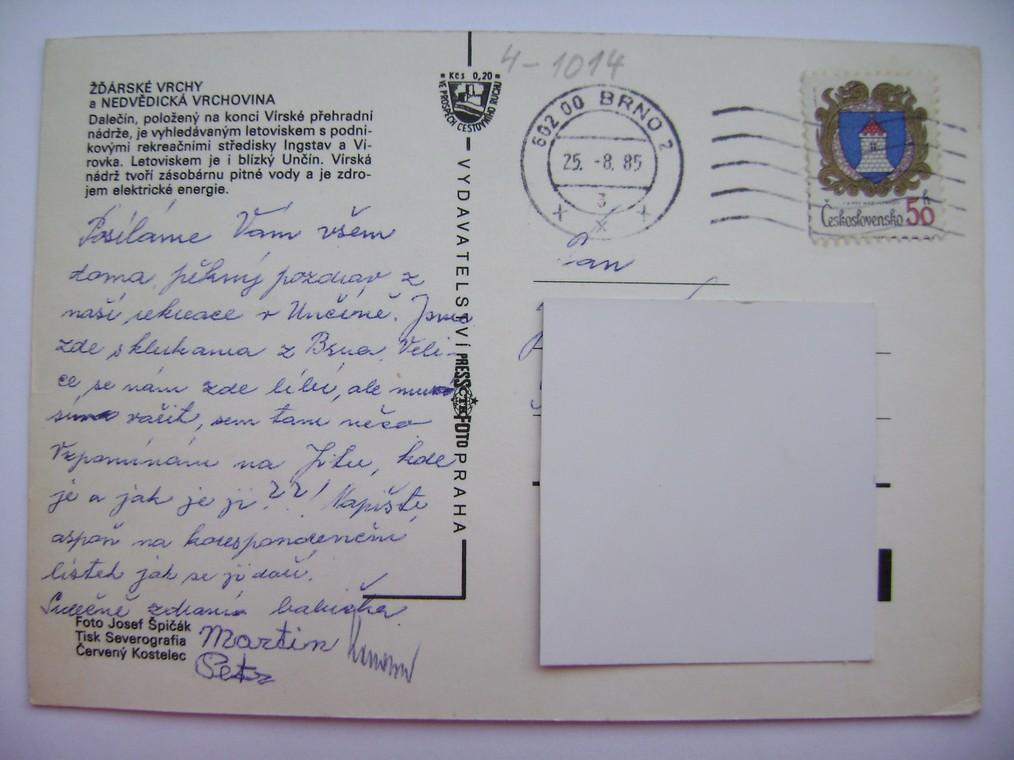 4-1014
ŽĎÁRSKÉ VRCHY
a NEDVĚDICKÁ VRCHOVINA
Dalečín, položený na konci Vírské přehradní
nádrže, je vyhledávaným letoviskem s podni-
kovými rekreačními středisky Ingstav a Ví-
rovka. Letoviskem je i blízký Unčín. Vírská
nádrž tvoří zásobárnu pitné vody a je zdro-
jem elektrické energie.
Kčs 0,20
VE PROSPĚCH CESTOVNÍHO RUCHU
602 00 BRNO 2
25. -8. 85
3
Československo 50 h
Posíláme Vám všem
doma pěkný pozdrav z
naší rekreace v Unčíně. Jsme
zde s klukama z Brna. Veli-
ce se nám zde líbí, ale
vařit, sem tam něco
Vzpomínám na Jitu, kde
je a jak je jí??! Napište
aspoň na korespondenční
lístek jak se jí daří.
Srdečně zdraví babička
Martin
Petr
Pan
VYDAVATELSTVÍ PRESSFOTO PRAHA
ČTK
Foto Josef Špičák
Tisk Severografia
Červený Kostelec